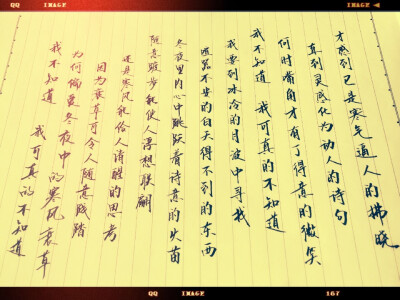 QQ IMAGE IMAGE
我不知道 我可真的不知道
为何偏爱冬夜中的寒风衰草
因为衰草可令人随意践踏
还是寒风能给人清醒的思考
随意踱步能使人浮想联翩
冬夜里内心中跳跃着诗意的火苗
喧嚣不安的白天得不到的东西
我要到冰冷的月波中寻找
我不知道 我可真的不知道
何时嘴角才有了得意的微笑
直到灵感化为动人的诗句
才感到已是寒气逼人的拂晓
QQ IMAGE 167